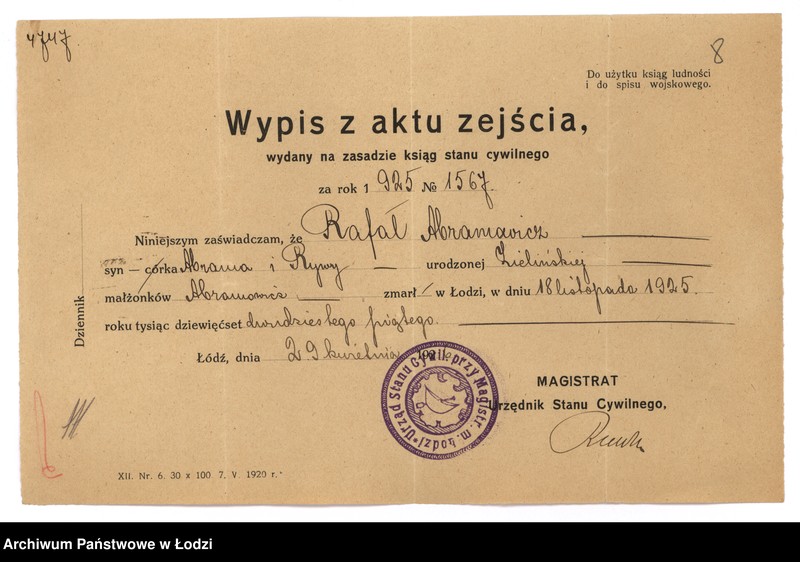 4747.
8
Do użytku ksiąg ludności
i do spisu wojskowego.
Wypis z aktu zejścia,
wydany na zasadzie ksiąg stanu cywilnego
za rok 1 925 № 1567.
Niniejszym zaświadczam, że Rafał Abramowicz
syn — córka Abrama i Rywy — urodzonej Zielińskiej
małżonków Abramowicz zmarł w Łodzi, w dniu 18 listopada 1925.
roku tysiąc dziewięćset dwudziestego piątego.
Łódź, dnia 29 kwietnia 192
Dziennik
Urząd Stanu Cywil. przy Magistr. m. Łodzi
MAGISTRAT
Urzędnik Stanu Cywilnego,
XII. Nr. 6. 30 x 100. 7. V. 1920 r.
Archiwum Państwowe w Łodzi